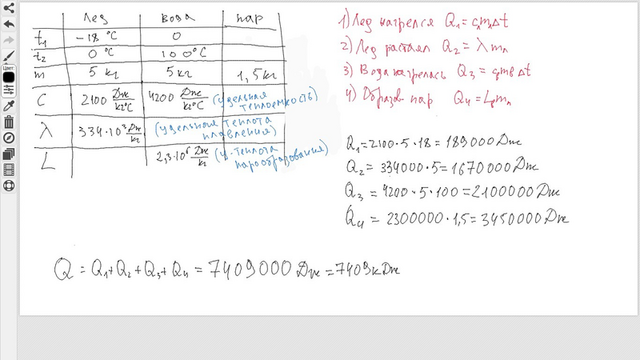 лед вода пар
t₁ -18 °C 0
t₂ 0 °C 100°C
m 5 кг 5 кг 1,5 кг
C 2100 Дж/кг°C 4200 Дж/кг°C (удельная теплоемкость)
λ 334·10³ Дж/кг (удельная теплота плавления)
L 2,3·10⁶ Дж/кг (у. теплота парообразования)
1) Лед нагрелся Q₁ = cлmлΔt
2) Лед растаял Q₂ = λ mл
3) Вода нагрелась Q₃ = cвmвΔt
4) Образов пар Q₄ = L mп
Q₁ = 2100·5·18 = 189000 Дж
Q₂ = 334000·5 = 1670000 Дж
Q₃ = 4200·5·100 = 2100000 Дж
Q₄ = 2300000·1,5 = 3450000 Дж
Q = Q₁+Q₂+Q₃+Q₄ = 7409000 Дж = 7409 кДж